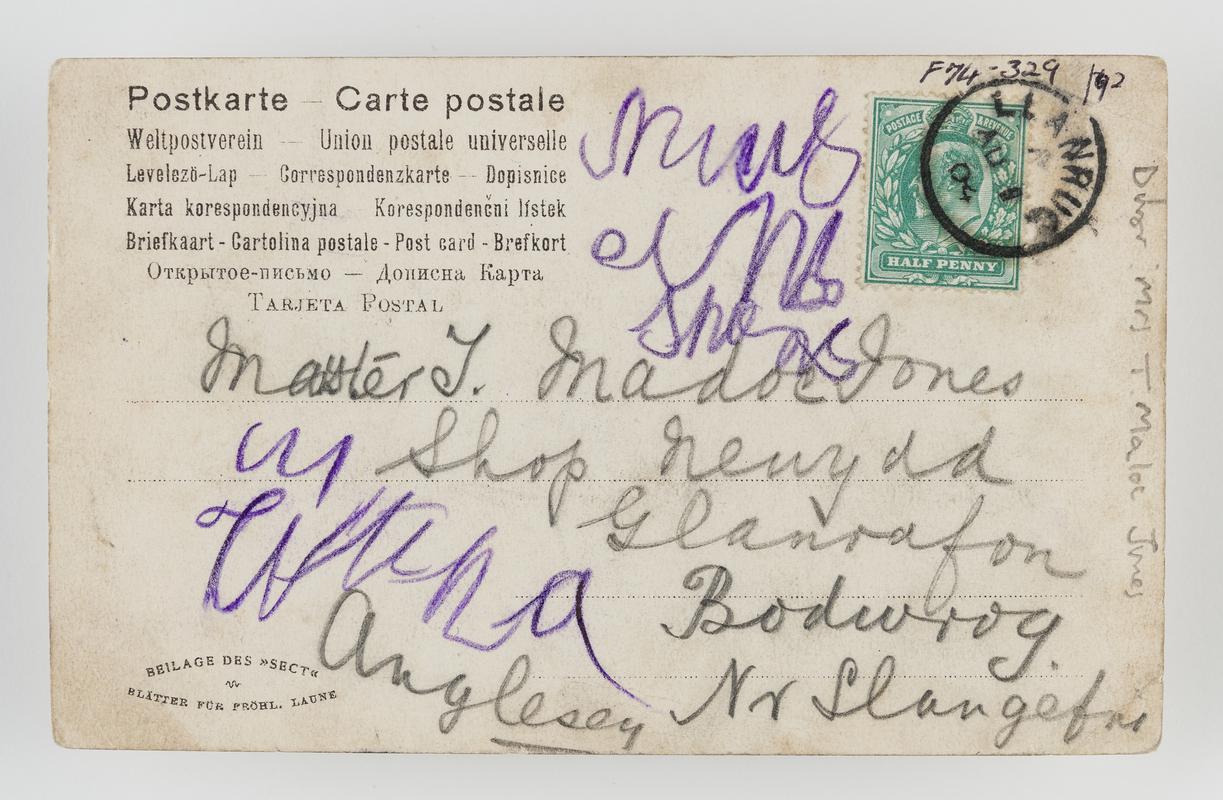 F74-329
Postkarte — Carte postale
Weltpostverein — Union postale universelle
Levelező-Lap — Correspondenzkarte — Dopisnice
Karta korespondencyjna Korespondenční lístek
Briefkaart - Cartolina postale - Post card - Brefkort
Открытое-письмо — Дописна Карта
Tarjeta Postal
POSTAGE & REVENUE
HALF PENNY
LLANRUG
04
Master T. Madoc Jones
Shop Newydd
Glanrafon
Bodwrog.
Nr Llangefni
Anglesey
BEILAGE DES »SECT«
BLÄTTER FÜR FRÖHL. LAUNE
Mrs T. Madoc Jones